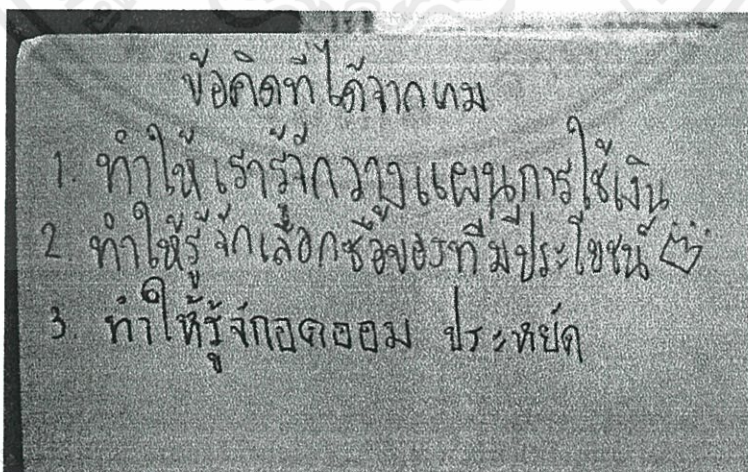 ข้อคิดที่ได้จากเกม
1. ทำให้เรารู้จักวางแผนการใช้เงิน
2. ทำให้รู้จักเลือกซื้อของที่มีประโยชน์
3. ทำให้รู้จักอดออม ประหยัด